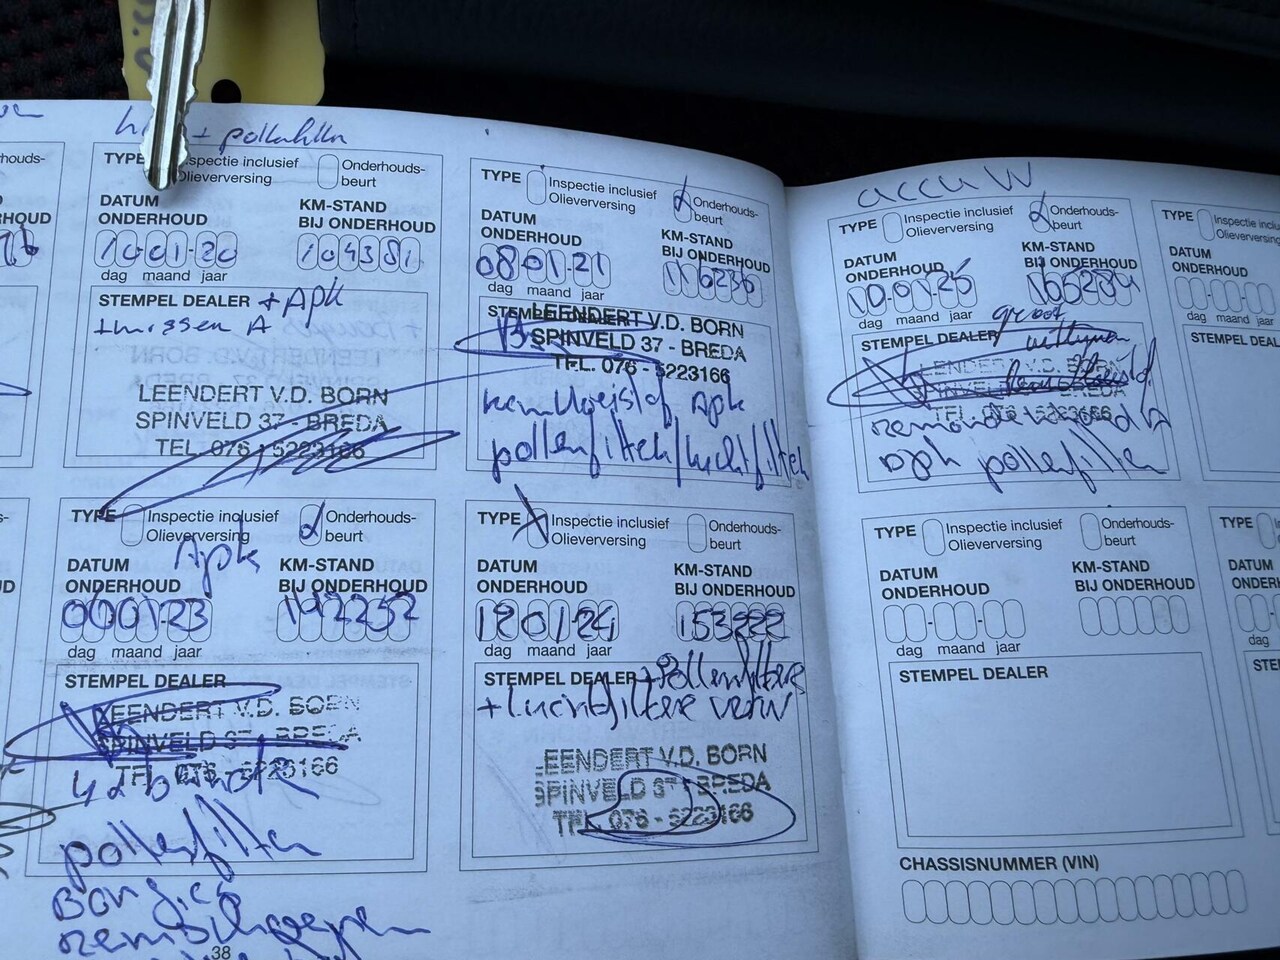 + pollenfilter
TYPE
Inspectie inclusief
Olieverversing
Onderhouds-
beurt
DATUM
ONDERHOUD
KM-STAND
BIJ ONDERHOUD
10-01-20
104381
dag maand jaar
STEMPEL DEALER + Apk
+ tussen A
LEENDERT V.D. BORN
SPINVELD 37 - BREDA
TEL. 076 - 5223166
TYPE
Inspectie inclusief
Olieverversing
Onderhouds-
beurt
DATUM
ONDERHOUD
KM-STAND
BIJ ONDERHOUD
08-01-21
116236
dag maand jaar
STEMPEL DEALER
LEENDERT V.D. BORN
SPINVELD 37 - BREDA
TEL. 076 - 5223166
remvloeistof Apk
pollenfilter/luchtfilter
TYPE
Inspectie inclusief
Olieverversing
Onderhouds-
beurt
Apk
DATUM
ONDERHOUD
KM-STAND
BIJ ONDERHOUD
01-23
142252
dag maand jaar
STEMPEL DEALER
LEENDERT V.D. BORN
SPINVELD 37 - BREDA
TEL. 076 - 5223166
pollenfilter
Bougies
38
TYPE
Inspectie inclusief
Olieverversing
Onderhouds-
beurt
DATUM
ONDERHOUD
KM-STAND
BIJ ONDERHOUD
12-01-24
153222
dag maand jaar
STEMPEL DEALER + Pollenfilter
+ Luchtfilter verv
LEENDERT V.D. BORN
SPINVELD 37 - BREDA
TEL. 076 - 5223166
accu W
TYPE
Inspectie inclusief
Olieverversing
Onderhouds-
beurt
DATUM
ONDERHOUD
KM-STAND
BIJ ONDERHOUD
10-01-25
166284
dag maand jaar
groot
STEMPEL DEALER
LEENDERT V.D. BORN
SPINVELD 37 - BREDA
TEL. 076 - 5223166
apk pollenfilter
TYPE
Inspectie inclusief
Olieverversing
Onderhouds-
beurt
DATUM
ONDERHOUD
KM-STAND
BIJ ONDERHOUD
dag maand jaar
STEMPEL DEALER
CHASSISNUMMER (VIN)
TYPE
Inspectie
Olieverversing
DATUM
ONDERHOUD
dag maand jaar
TYPE
DATUM
dag